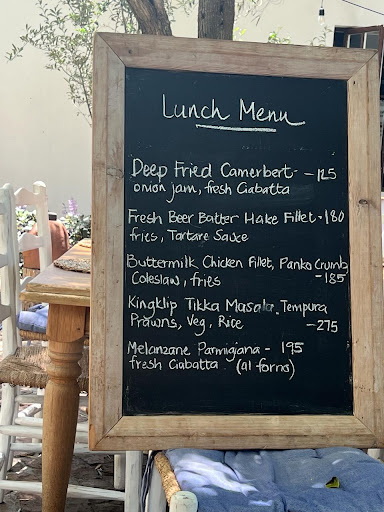 Lunch Menu
Deep Fried Camerbert - 125
onion jam, fresh Ciabatta
Fresh Beer Batter Hake Fillet - 180
fries, Tartare Sauce
Buttermilk Chicken Fillet, Panko Crumb
Coleslaw, fries - 185
Kingklip Tikka Masala, Tempura
Prawns, Veg, Rice - 275
Melanzane Parmigiana - 195
fresh Ciabatta (al forno)